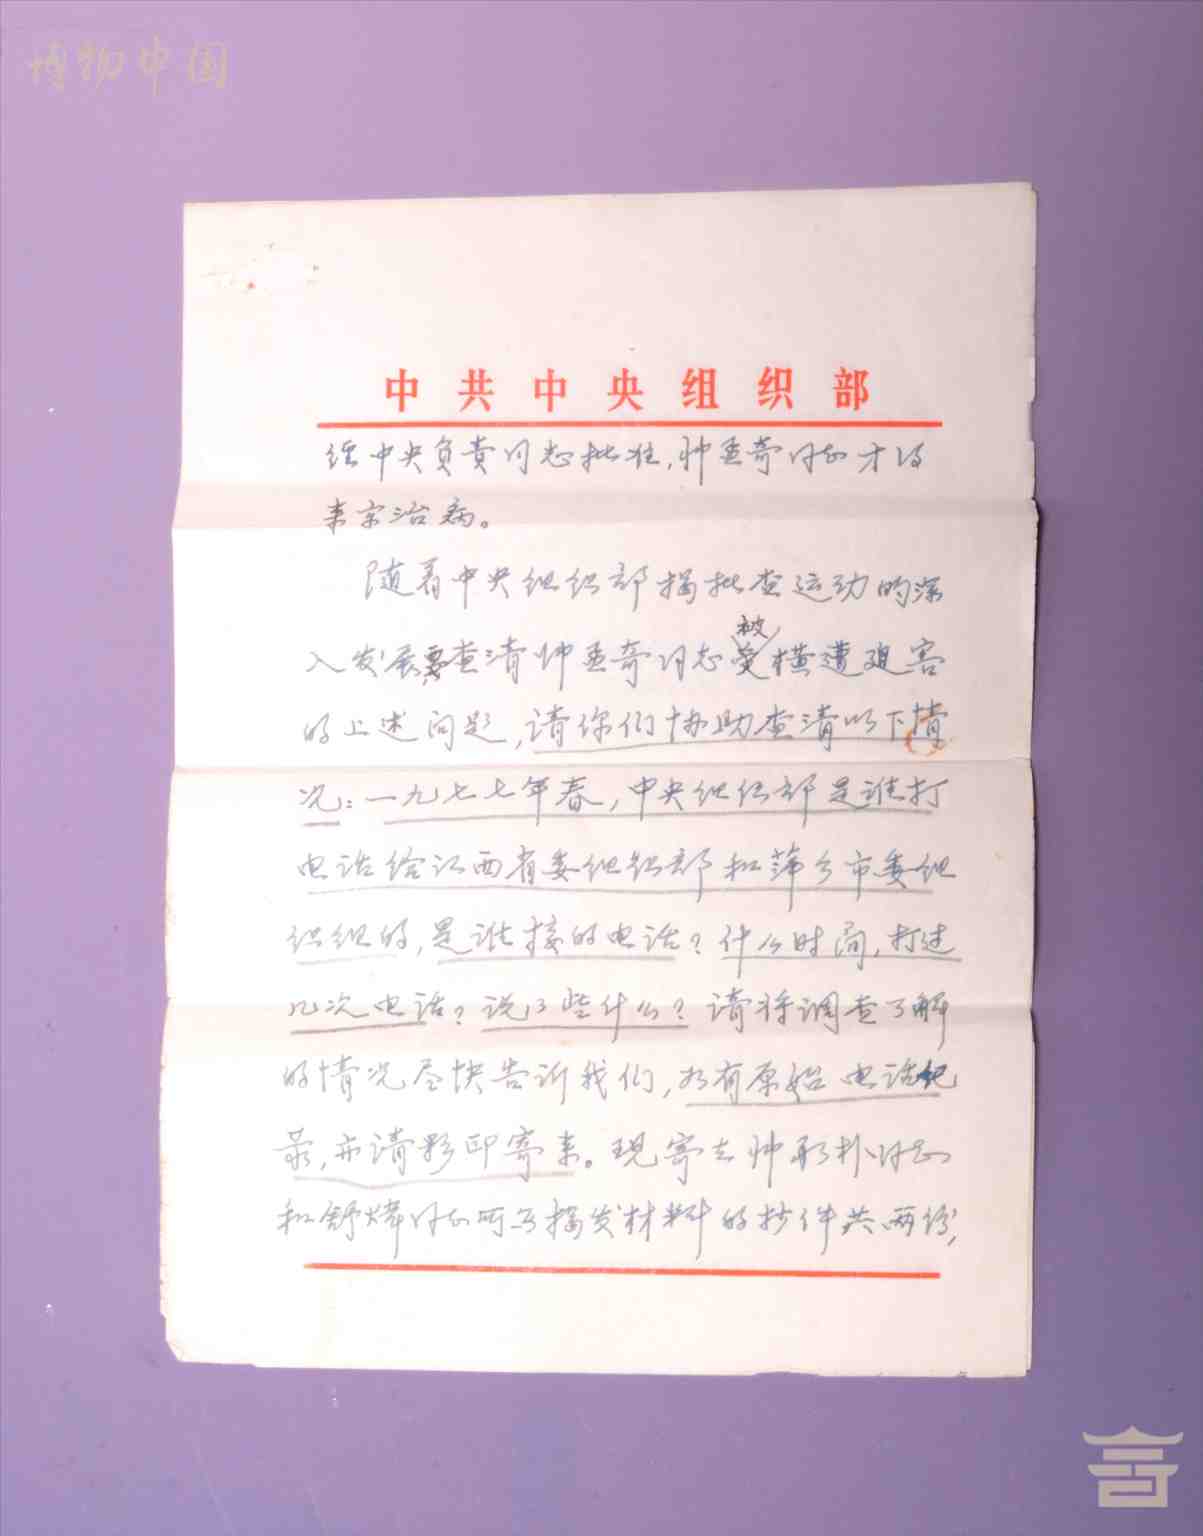 博物中国
中共中央组织部
经中央负责同志批准,帅孟奇同志才得
来京治病。
随着中央组织部揭批查运动的深
入发展,要查清帅孟奇同志被横遭迫害
的上述问题,请你们协助查清以下情
况:一九七七年春,中央组织部是谁打
电话给江西省委组织部和萍乡市委组
织组的,是谁接的电话?什么时间,打过
几次电话?说了些什么?请将调查了解
的情况尽快告诉我们,如有原始电话纪
录,亦请影印寄来。现寄去帅 同志
和舒炜同志所写揭发材料的抄件共两份,